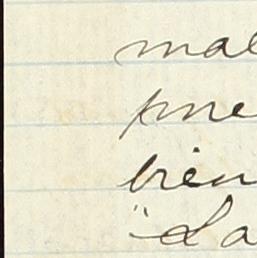 mal
pne
bien
"La